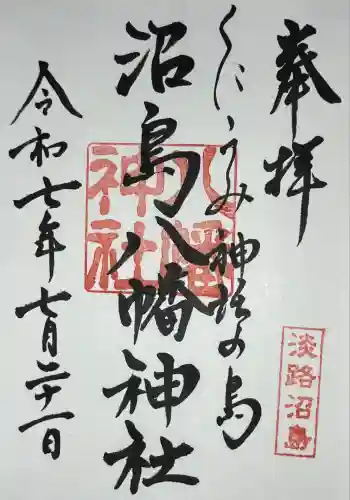 奉拝
くにうみ神話の島
沼島八幡神社
令和七年七月二十一日
八幡神社
淡路沼島